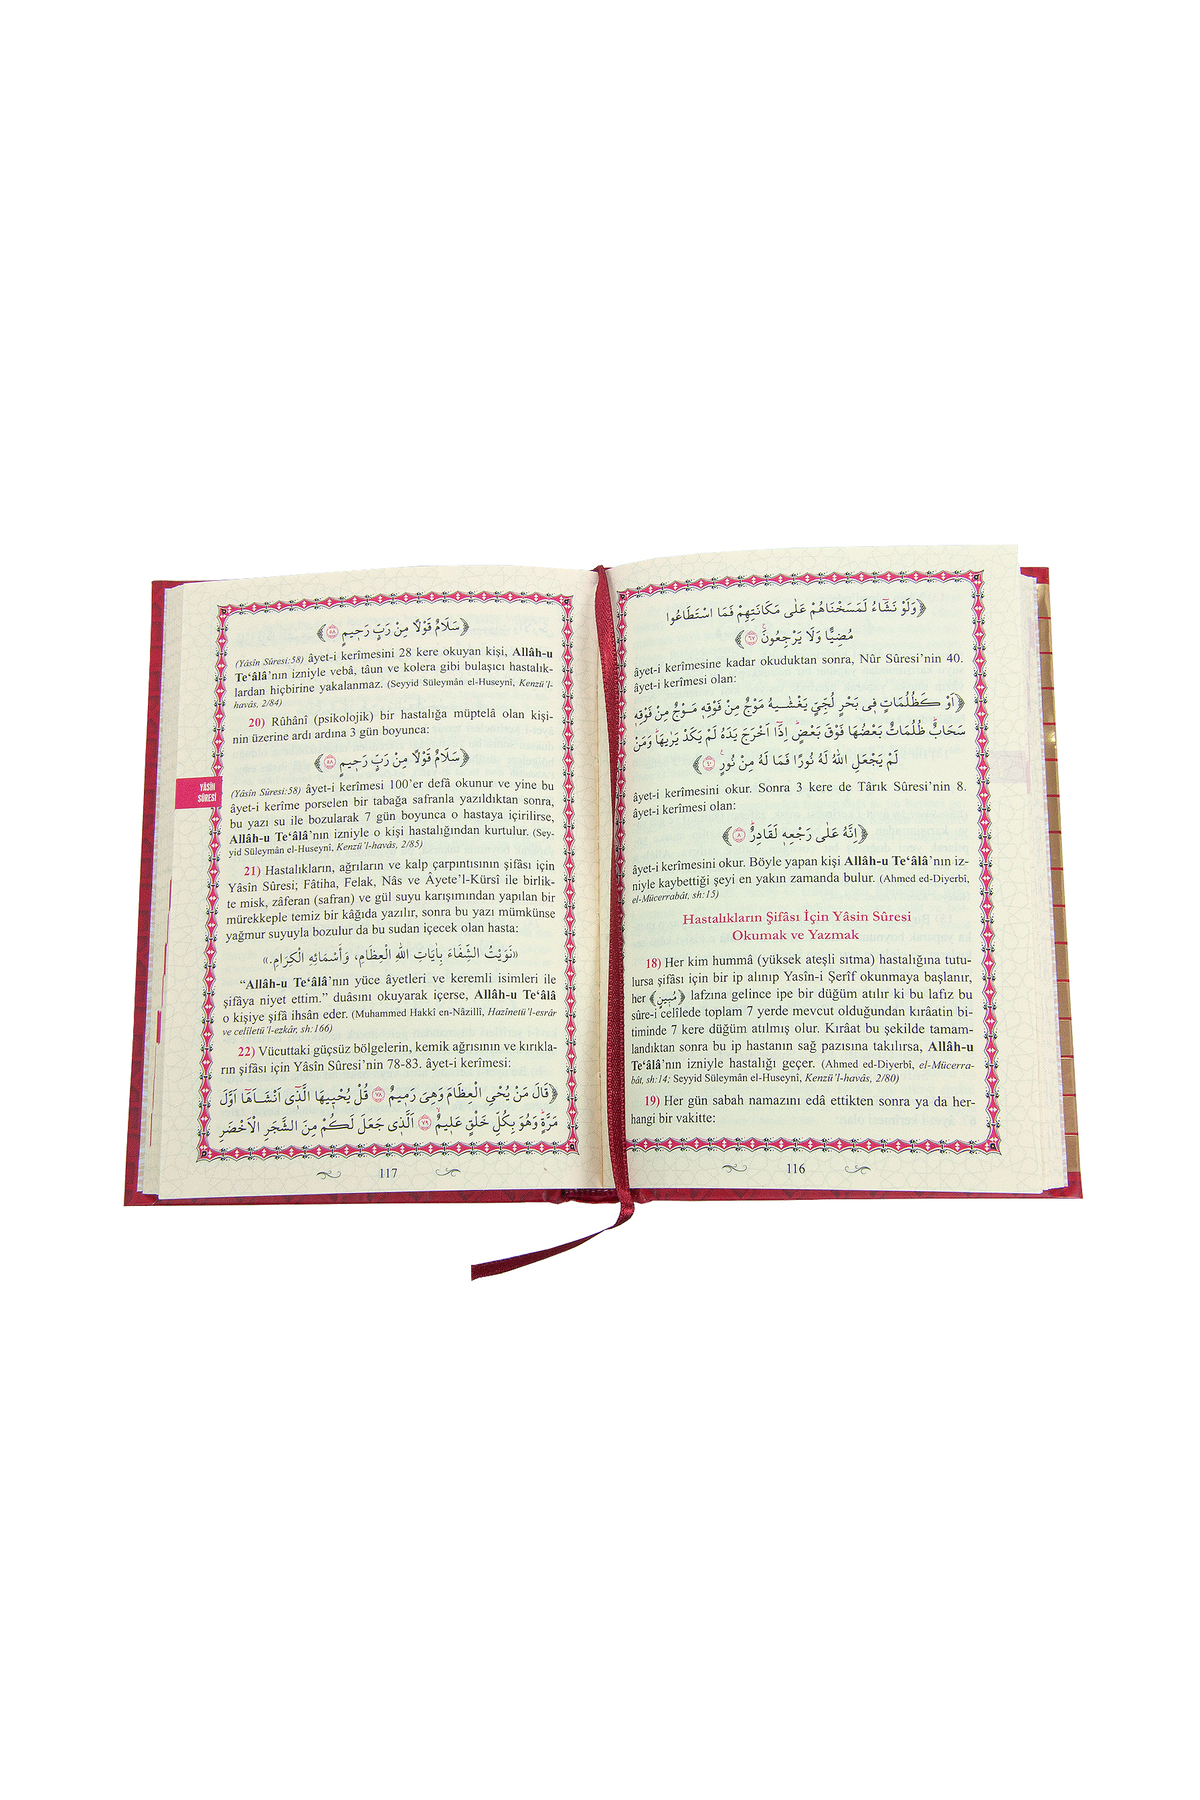 ﴿وَلَوْ نَشَٓاءُ لَمَسَخْنَاهُمْ عَلٰى مَكَانَتِهِمْ فَمَا اسْتَطَاعُوا
مُضِيًّا وَلَا يَرْجِعُونَ۟ ﴿٦٧﴾
âyet-i kerîmesine kadar okuduktan sonra, Nûr Sûresi’nin 40.
âyet-i kerîmesi olan:
﴿اَوْ كَظُلُمَاتٍ ف۪ي بَحْرٍ لُجِّيٍّ يَغْشٰيهُ مَوْجٌ مِنْ فَوْقِه۪ مَوْجٌ مِنْ فَوْقِه۪
سَحَابٌۜ ظُلُمَاتٌ بَعْضُهَا فَوْقَ بَعْضٍۜ اِذَٓا اَخْرَجَ يَدَهُ لَمْ يَكَدْ يَرٰيهَاۜ وَمَنْ
لَمْ يَجْعَلِ اللّٰهُ لَهُ نُورًا فَمَا لَهُ مِنْ نُورٍ۟ ﴿٤٠﴾
âyet-i kerîmesini okur. Sonra 3 kere de Târık Sûresi’nin 8.
âyet-i kerîmesi olan:
﴿اِنَّهُ عَلٰى رَجْعِه۪ لَقَادِرٌۜ ﴿٨﴾
âyet-i kerîmesini okur. Böyle yapan kişi Allâh-u Te‘âlâ’nın iz-
niyle kaybettiği şeyi en yakın zamanda bulur. (Ahmed ed-Diyerbî,
el-Mücerrabât, sh:15)
Hastalıkların Şifâsı İçin Yâsin Sûresi
Okumak ve Yazmak
18) Her kim hummâ (yüksek ateşli sıtma) hastalığına tutu-
lursa şifâsı için bir ip alınıp Yasîn-i Şerîf okunmaya başlanır,
her ﴿مُب۪ينٍ﴾ lafzına gelince ipe bir düğüm atılır ki bu lafız bu
sûre-i celîlede toplam 7 yerde mevcut olduğundan kırâatin bi-
timinde 7 kere düğüm atılmış olur. Kırâat bu şekilde tamam-
landıktan sonra bu ip hastanın sağ pazısına takılırsa, Allâh-u
Te‘âlâ’nın izniyle hastalığı geçer. (Ahmed ed-Diyerbî, el-Mücerra-
bât, sh:14; Seyyid Süleymân el-Huseynî, Kenzü’l-havâs, 2/80)
19) Her gün sabah namazını edâ ettikten sonra ya da her-
hangi bir vakitte:
116
﴿سَلَامٌ قَوْلًا مِنْ رَبٍّ رَح۪يمٍ ﴿٥٨﴾
(Yâsîn Sûresi:58) âyet-i kerîmesini 28 kere okuyan kişi, Allâh-u
Te‘âlâ’nın izniyle vebâ, tâun ve kolera gibi bulaşıcı hastalık-
lardan hiçbirine yakalanmaz. (Seyyid Süleymân el-Huseynî, Kenzü’l-
havâs, 2/84)
20) Rûhânî (psikolojik) bir hastalığa müptelâ olan kişi-
nin üzerine ardı ardına 3 gün boyunca:
﴿سَلَامٌ قَوْلًا مِنْ رَبٍّ رَح۪يمٍ ﴿٥٨﴾
(Yâsîn Sûresi:58) âyet-i kerîmesi 100’er defâ okunur ve yine bu
âyet-i kerîme porselen bir tabağa safranla yazıldıktan sonra,
bu yazı su ile bozularak 7 gün boyunca o hastaya içirilirse,
Allâh-u Te‘âlâ’nın izniyle o kişi hastalığından kurtulur. (Sey-
yid Süleymân el-Huseynî, Kenzü’l-havâs, 2/85)
YÂSÎN
SÛRESİ
21) Hastalıkların, ağrıların ve kalp çarpıntısının şifâsı için
Yâsîn Sûresi; Fâtiha, Felak, Nâs ve Âyete’l-Kürsî ile birlik-
te misk, zâferan (safran) ve gül suyu karışımından yapılan bir
mürekkeple temiz bir kâğıda yazılır, sonra bu yazı mümkünse
yağmur suyuyla bozulur da bu sudan içecek olan hasta:
«نَوَيْتُ الشِّفَاءَ بِاٰيَاتِ اللّٰهِ الْعِظَامِ، وَأَسْمَائِهِ الْكِرَامِ.»
“Allâh-u Te‘âlâ’nın yüce âyetleri ve keremli isimleri ile
şifâya niyet ettim.” duâsını okuyarak içerse, Allâh-u Te‘âlâ
o kişiye şifâ ihsân eder. (Muhammed Hakkî en-Nâzillî, Hazînetü’l-esrâr
ve celîletü’l-ezkâr, sh:166)
22) Vücuttaki güçsüz bölgelerin, kemik ağrısının ve kırıkla-
rın şifâsı için Yâsîn Sûresi’nin 78-83. âyet-i kerîmesi:
﴿قَالَ مَنْ يُحْيِ الْعِظَامَ وَهِيَ رَم۪يمٌ ﴿٧٨﴾ قُلْ يُحْي۪يهَا الَّذ۪ٓي اَنْشَاَهَٓا اَوَّلَ
مَرَّةٍۜ وَهُوَ بِكُلِّ خَلْقٍ عَل۪يمٌۙ ﴿٧٩﴾ اَلَّذ۪ي جَعَلَ لَكُمْ مِنَ الشَّجَرِ الْاَخْضَرِ
117